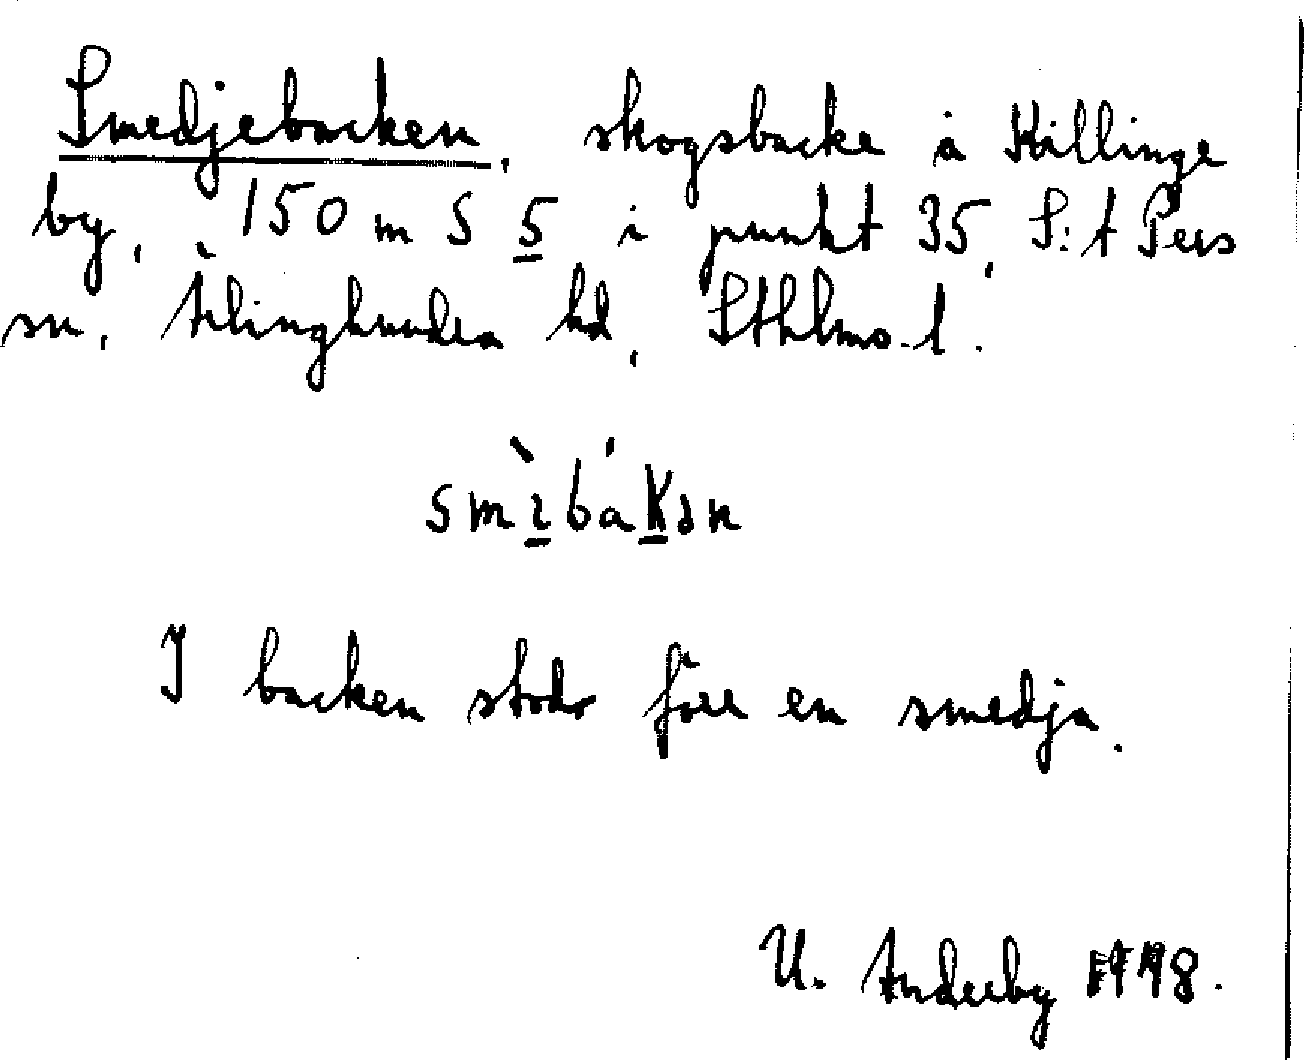 Smedjebacken, skogsbacke å Källinge
by, 150 m S 5 i punkt 35, S:t Pers
sn, Ärlinghundra hd, Sthlms l.
smìbákən
I backen stod förr en smedja.
U. Anderby 1948.